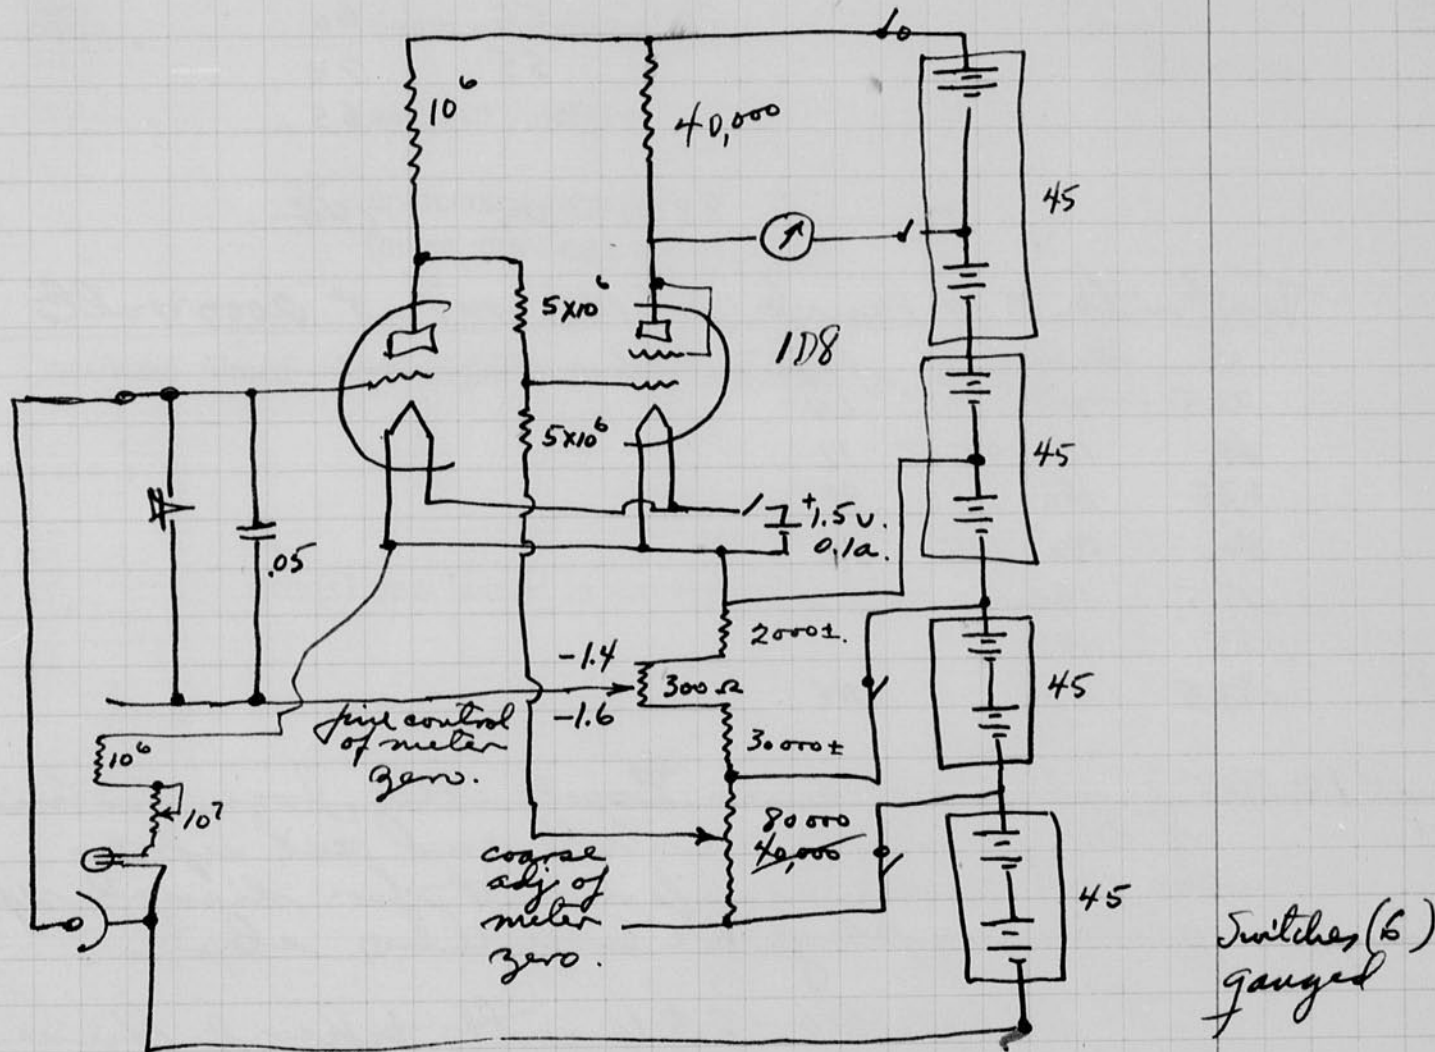 10⁶
40,000
45
5x10⁶
1D8
5x10⁶
45
+
1.5v.
0.1a.
.05
2000±.
-1.4
300Ω
-1.6
45
fine control
of meter
zero.
30000±
10⁶
10⁷
80000
40,000
coarse
adj of
meter
zero.
45
Switches (6)
ganged